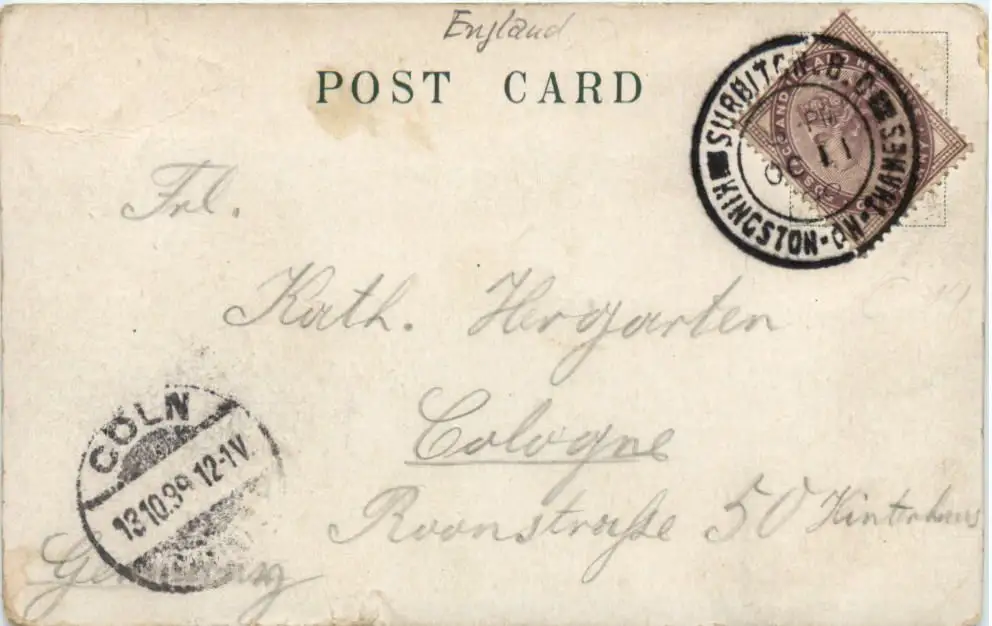 England
POST CARD
SURBITON.B.O
KINGSTON-ON-THAMES
PM
11
Frl.
Kath. Hergarten
Cologne
Roonstraße 50 Hinterhaus
Germany
CÖLN
13.10.99 12-1V.